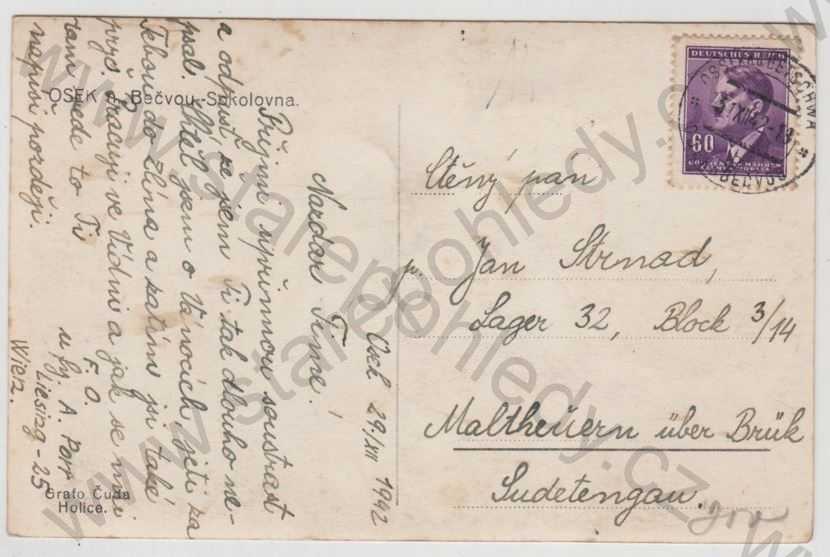 OSEK n. Bečvou - Sokolovna.
Osek 29/XII 1942
Nazdar Time!
Přijmi upřímnou soustrast
a odpusť že jsem Ti tak dlouho ne-
psal. Chtěl jsem o Vánocích jeti za
Tebou do Zlína a zatím jsi také
pryč. Pracuji ve Vídni a jak se mi
tam vede to Ti
napíši později.
F. O.
u fy. A. Porr
Liesing - 25
Wien.
Grafo Čuda
Holice.
DEUTSCHES REICH
60
31.XII.42-18
Ctěný pan
p. Jan Strnad,
Lager 32, Block 3/14
Maltheuern über Brük
Sudetengau.
www.starepohledy.cz